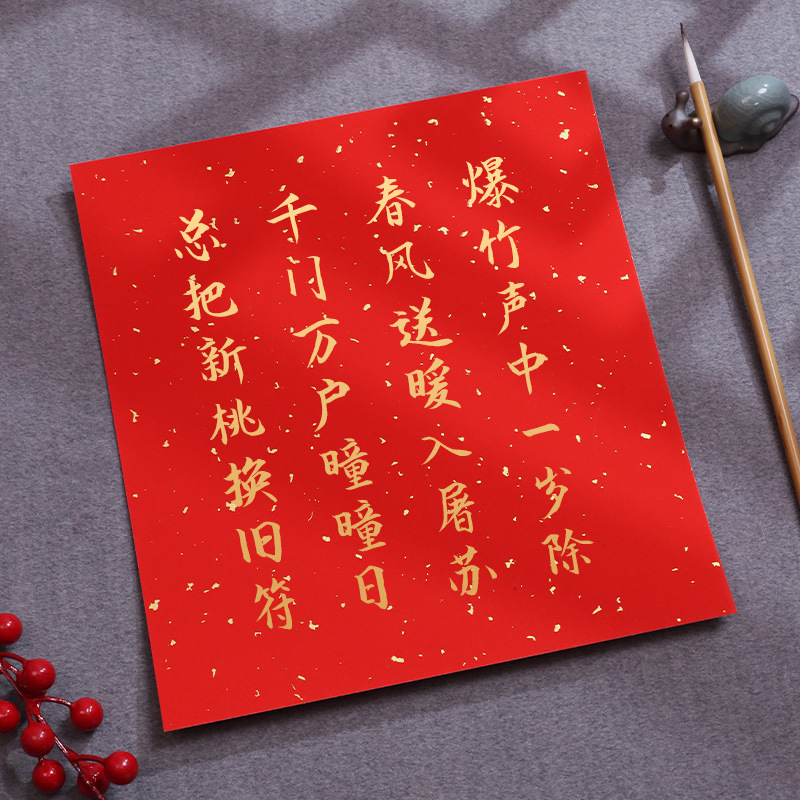 爆竹声中一岁除
春风送暖入屠苏
千门万户曈曈日
总把新桃换旧符